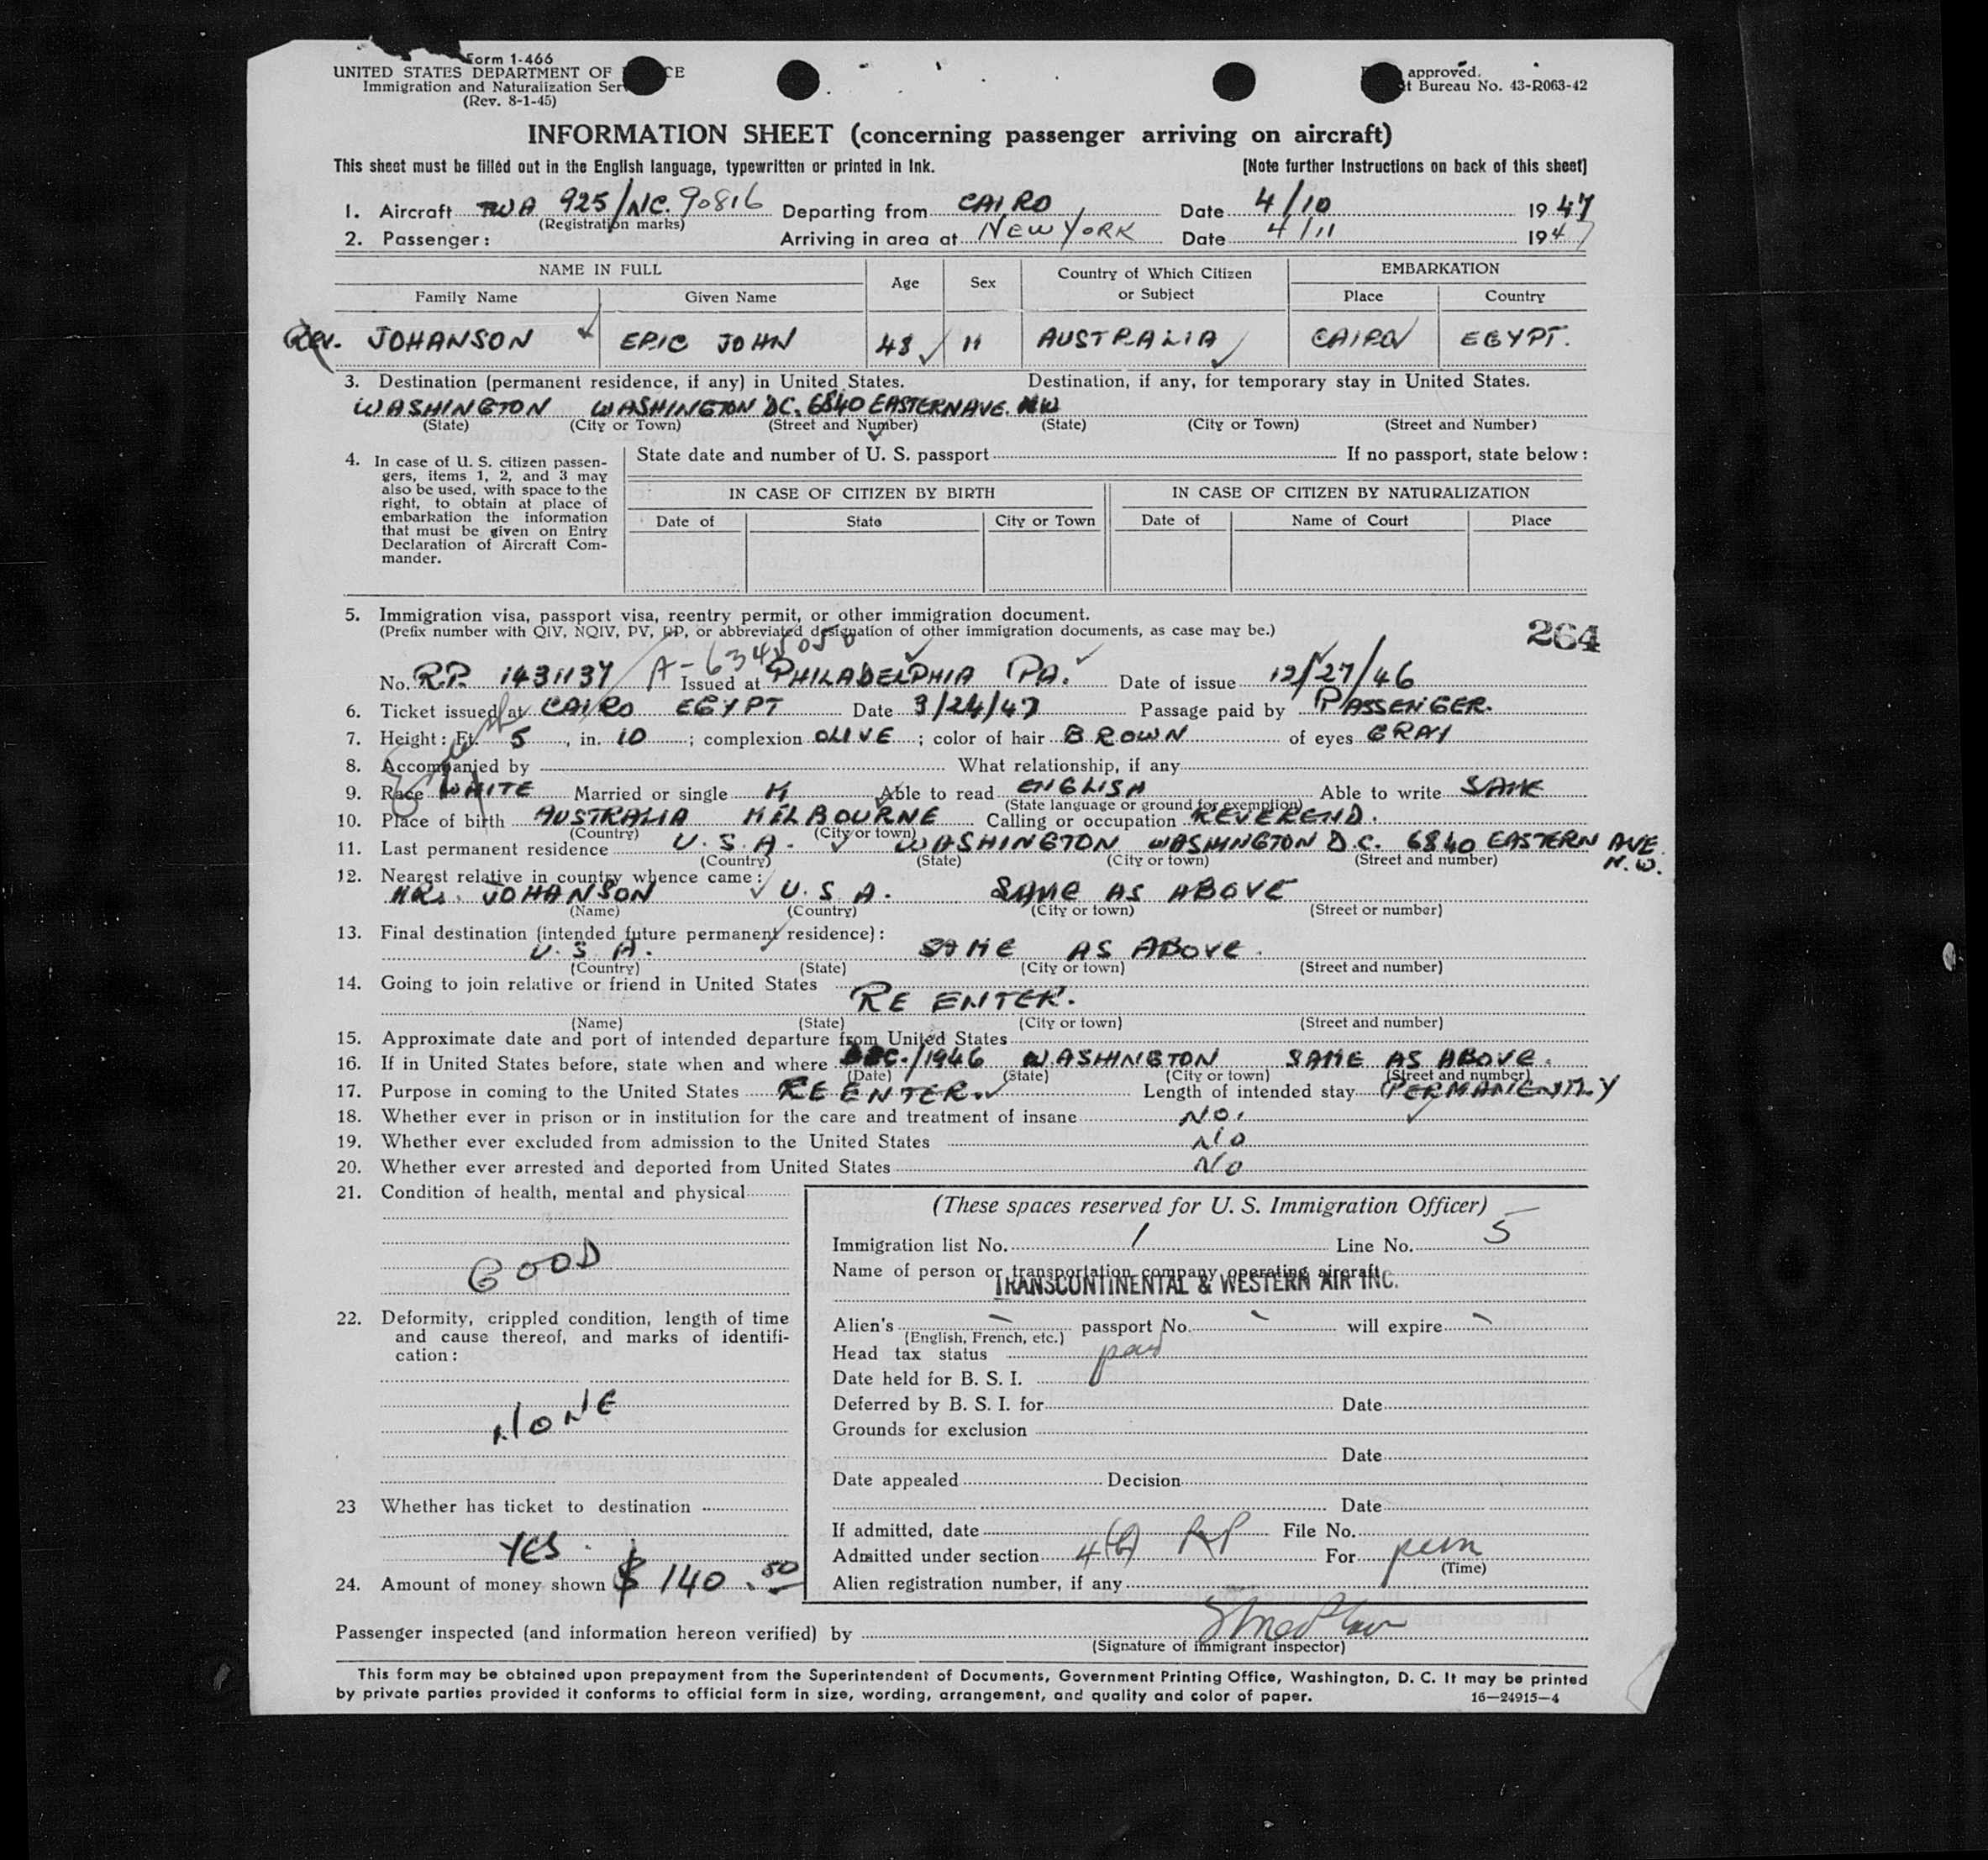 Form 1-466
UNITED STATES DEPARTMENT OF CE
Immigration and Naturalization Ser
(Rev. 8-1-45)
approved.
t Bureau No. 43-R063-42
INFORMATION SHEET (concerning passenger arriving on aircraft)
This sheet must be filled out in the English language, typewritten or printed in Ink. [Note further Instructions on back of this sheet]
1. Aircraft TWA 925/NC. 90816 Departing from CAIRO Date 4/10 1947
(Registration marks)
2. Passenger: Arriving in area at NEW YORK Date 4/11 1947
NAME IN FULL Age Sex Country of Which Citizen or Subject EMBARKATION
Family Name Given Name Place Country
Rev. JOHANSON ERIC JOHN 48 M AUSTRALIA CAIRO EGYPT.
3. Destination (permanent residence, if any) in United States. Destination, if any, for temporary stay in United States.
WASHINGTON WASHINGTON DC. 6840 EASTERN AVE. NW
(State) (City or Town) (Street and Number) (State) (City or Town) (Street and Number)
4. In case of U. S. citizen passen-
gers, items 1, 2, and 3 may
also be used, with space to the
right, to obtain at place of
embarkation the information
that must be given on Entry
Declaration of Aircraft Com-
mander.
State date and number of U. S. passport If no passport, state below:
IN CASE OF CITIZEN BY BIRTH IN CASE OF CITIZEN BY NATURALIZATION
Date of State City or Town Date of Name of Court Place
5. Immigration visa, passport visa, reentry permit, or other immigration document.
(Prefix number with QIV, NQIV, PV, RP, or abbreviated designation of other immigration documents, as case may be.)
264
A-6345050
No. R.P. 1431137 Issued at PHILADELPHIA PA. Date of issue 12/27/46
6. Ticket issued at CAIRO EGYPT Date 3/24/47 Passage paid by PASSENGER.
7. Height: Ft. 5, in. 10; complexion OLIVE; color of hair BROWN of eyes GRAY
8. Accompanied by What relationship, if any
9. Race WHITE Married or single M Able to read ENGLISH Able to write SAME
(State language or ground for exemption)
10. Place of birth AUSTRALIA MELBOURNE Calling or occupation REVEREND.
(Country) (City or town)
11. Last permanent residence U. S. A. WASHINGTON WASHINGTON D.C. 6840 EASTERN AVE. N.W.
(Country) (State) (City or town) (Street and number)
12. Nearest relative in country whence came:
MRS. JOHANSON U. S A. SAME AS ABOVE
(Name) (Country) (City or town) (Street or number)
13. Final destination (intended future permanent residence):
U. S A. SAME AS ABOVE.
(Country) (State) (City or town) (Street and number)
14. Going to join relative or friend in United States
RE ENTER.
(Name) (State) (City or town) (Street and number)
15. Approximate date and port of intended departure from United States
16. If in United States before, state when and where DEC./1946 WASHINGTON SAME AS ABOVE.
(Date) (State) (City or town) (Street and number)
17. Purpose in coming to the United States RE ENTER. Length of intended stay PERMANENTLY
18. Whether ever in prison or in institution for the care and treatment of insane NO.
19. Whether ever excluded from admission to the United States NO
20. Whether ever arrested and deported from United States NO
21. Condition of health, mental and physical
GOOD
22. Deformity, crippled condition, length of time
and cause thereof, and marks of identifi-
cation:
NONE
23 Whether has ticket to destination
YES.
24. Amount of money shown $ 140.50
(These spaces reserved for U. S. Immigration Officer)
Immigration list No. 1 Line No. 5
Name of person or transportation company operating aircraft
TRANSCONTINENTAL & WESTERN AIR INC.
Alien's - passport No. - will expire -
(English, French, etc.)
Head tax status paid
Date held for B. S. I.
Deferred by B. S. I. for Date
Grounds for exclusion
Date
Date appealed Decision
Date
If admitted, date File No.
Admitted under section 4(b) RP For perm
(Time)
Alien registration number, if any
Passenger inspected (and information hereon verified) by
(Signature of immigrant inspector)
This form may be obtained upon prepayment from the Superintendent of Documents, Government Printing Office, Washington, D. C. It may be printed
by private parties provided it conforms to official form in size, wording, arrangement, and quality and color of paper. 16—24915-4